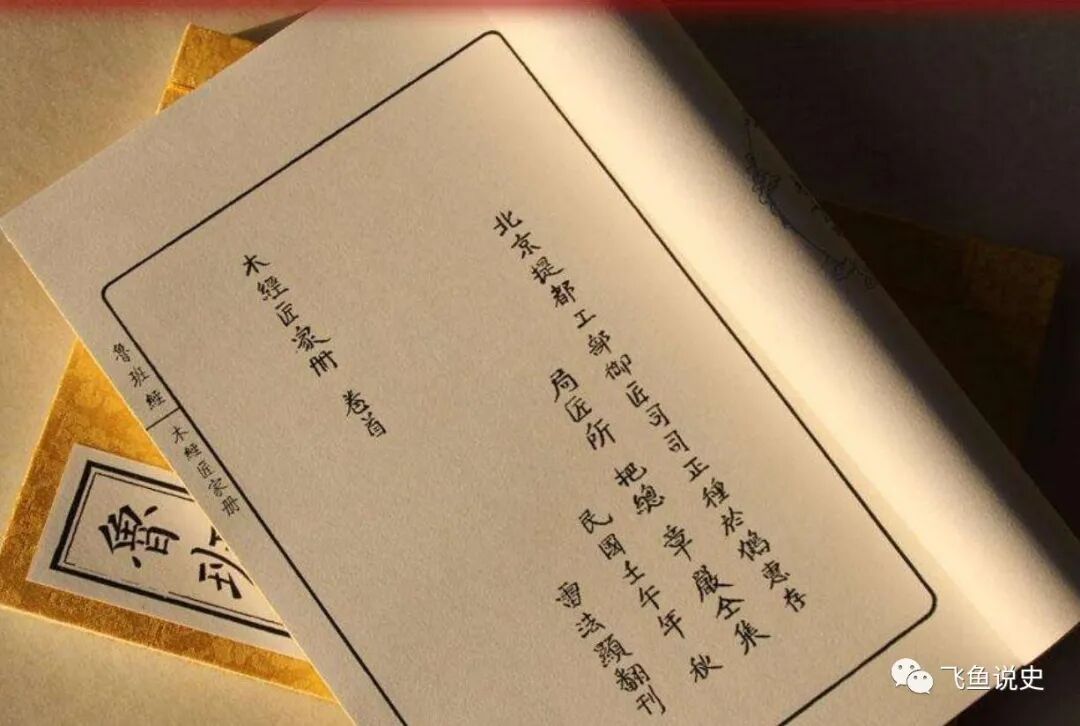 北京提都工部御匠司司正種於鵷惠存
局匠所 把總 章嚴仝集
民國壬午年 秋
雷法顯翻刊
木經匠家册 卷首
魯班經
木經匠家册
魯班
飞鱼说史